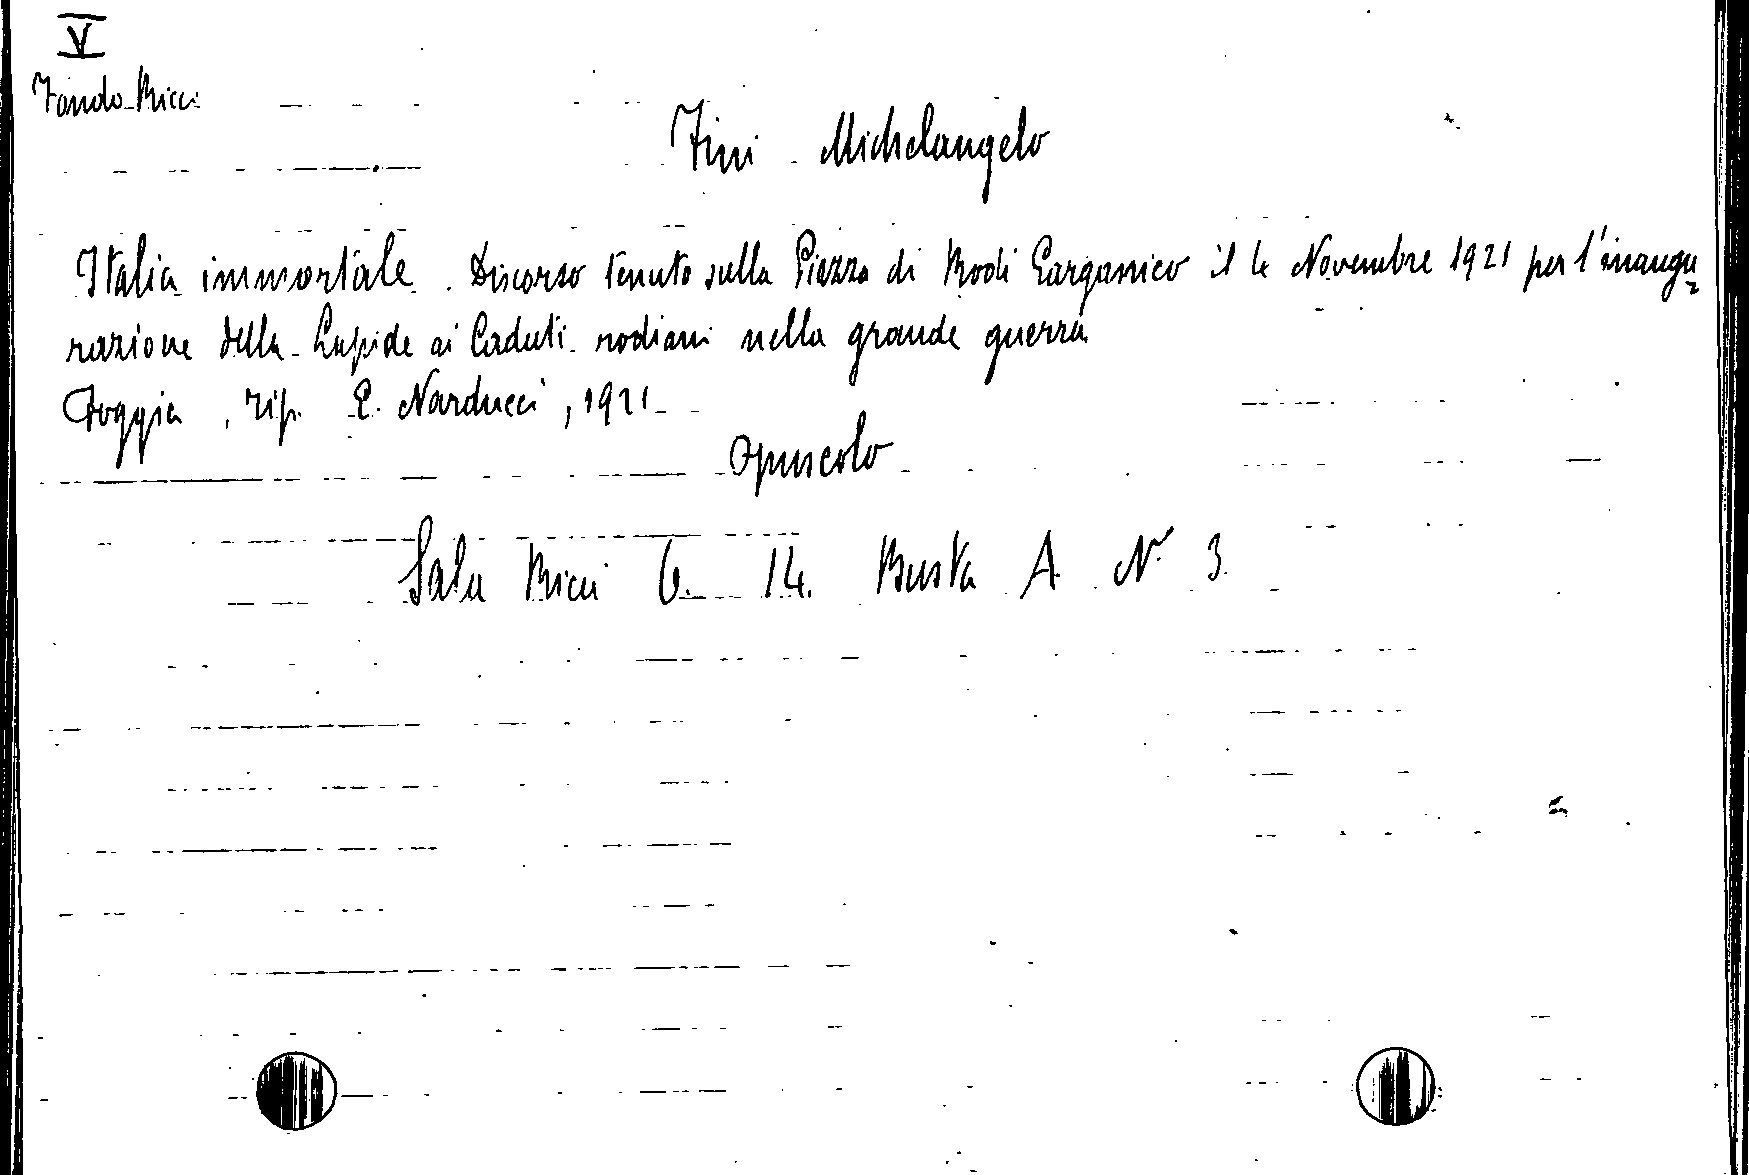 V
Fondo Ricci
Fini Michelangelo
Italia immortale. Discorso tenuto sulla Piazza di Rodi Garganico il 4 Novembre 1921 per l'inaugu=
razione della Lapide ai Caduti rodiani nella grande guerra
Foggia, tip. E. Narducci, 1921
Opuscolo
Sala Ricci C. 14. Busta A N. 3